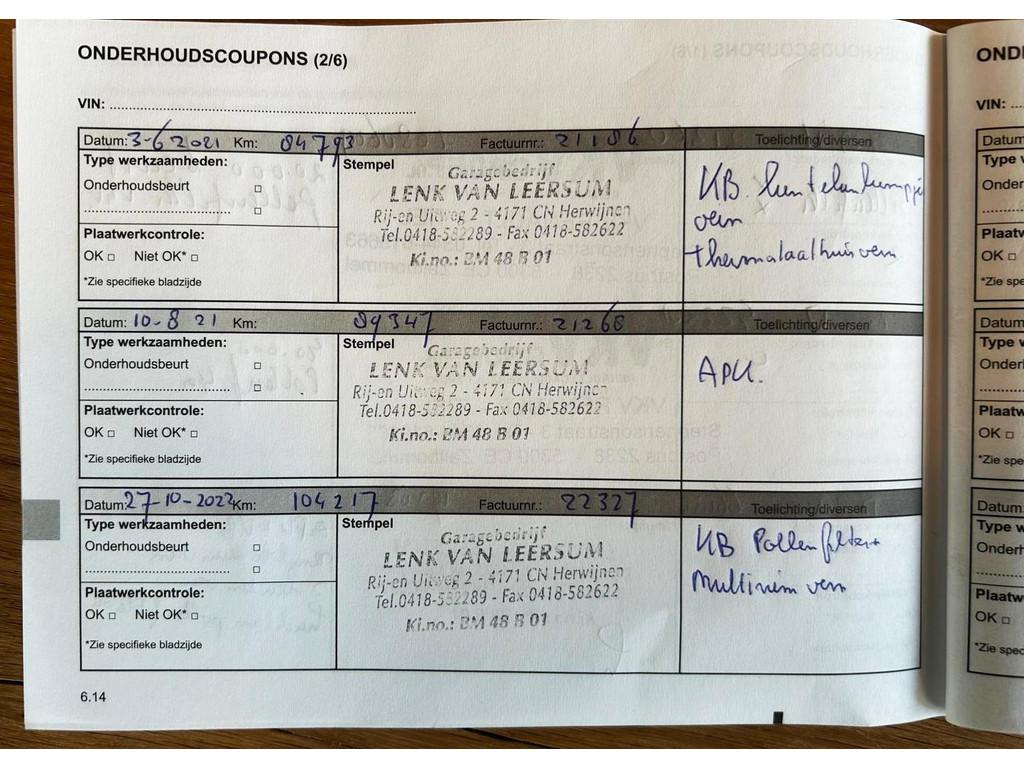 ONDERHOUDSCOUPONS (2/6)
VIN:
Datum: 3-6 2021 Km: 84793 Factuurnr.: 21186 Toelichting/diversen
Type werkzaamheden:
Onderhoudsbeurt
Plaatwerkcontrole:
OK Niet OK*
*Zie specifieke bladzijde
Stempel
Garagebedrijf
LENK VAN LEERSUM
Rij-en Uitweg 2 - 4171 CN Herwijnen
Tel.0418-582289 - Fax 0418-582622
Ki.no.: BM 48 B 01
KB
vern
thermostaathuis vern
Datum: 10-8 21 Km: 89347 Factuurnr.: 21268 Toelichting/diversen
Type werkzaamheden:
Onderhoudsbeurt
Plaatwerkcontrole:
OK Niet OK*
*Zie specifieke bladzijde
Stempel
Garagebedrijf
LENK VAN LEERSUM
Rij-en Uitweg 2 - 4171 CN Herwijnen
Tel.0418-582289 - Fax 0418-582622
Ki.no.: BM 48 B 01
APK.
Datum: 27-10-2022 Km: 104217 Factuurnr.: 22327 Toelichting/diversen
Type werkzaamheden:
Onderhoudsbeurt
Plaatwerkcontrole:
OK Niet OK*
*Zie specifieke bladzijde
Stempel
Garagebedrijf
LENK VAN LEERSUM
Rij-en Uitweg 2 - 4171 CN Herwijnen
Tel.0418-582289 - Fax 0418-582622
Ki.no.: BM 48 B 01
KB Pollenfilter
multiriem vern
6.14
OND
VIN:
Datum
Type w
Onder
Plaatw
OK
*Zie spe
Datum
Type w
Onder
Plaatw
OK
*Zie spe
Datum
Type w
Onderh
Plaatw
OK
*Zie spec